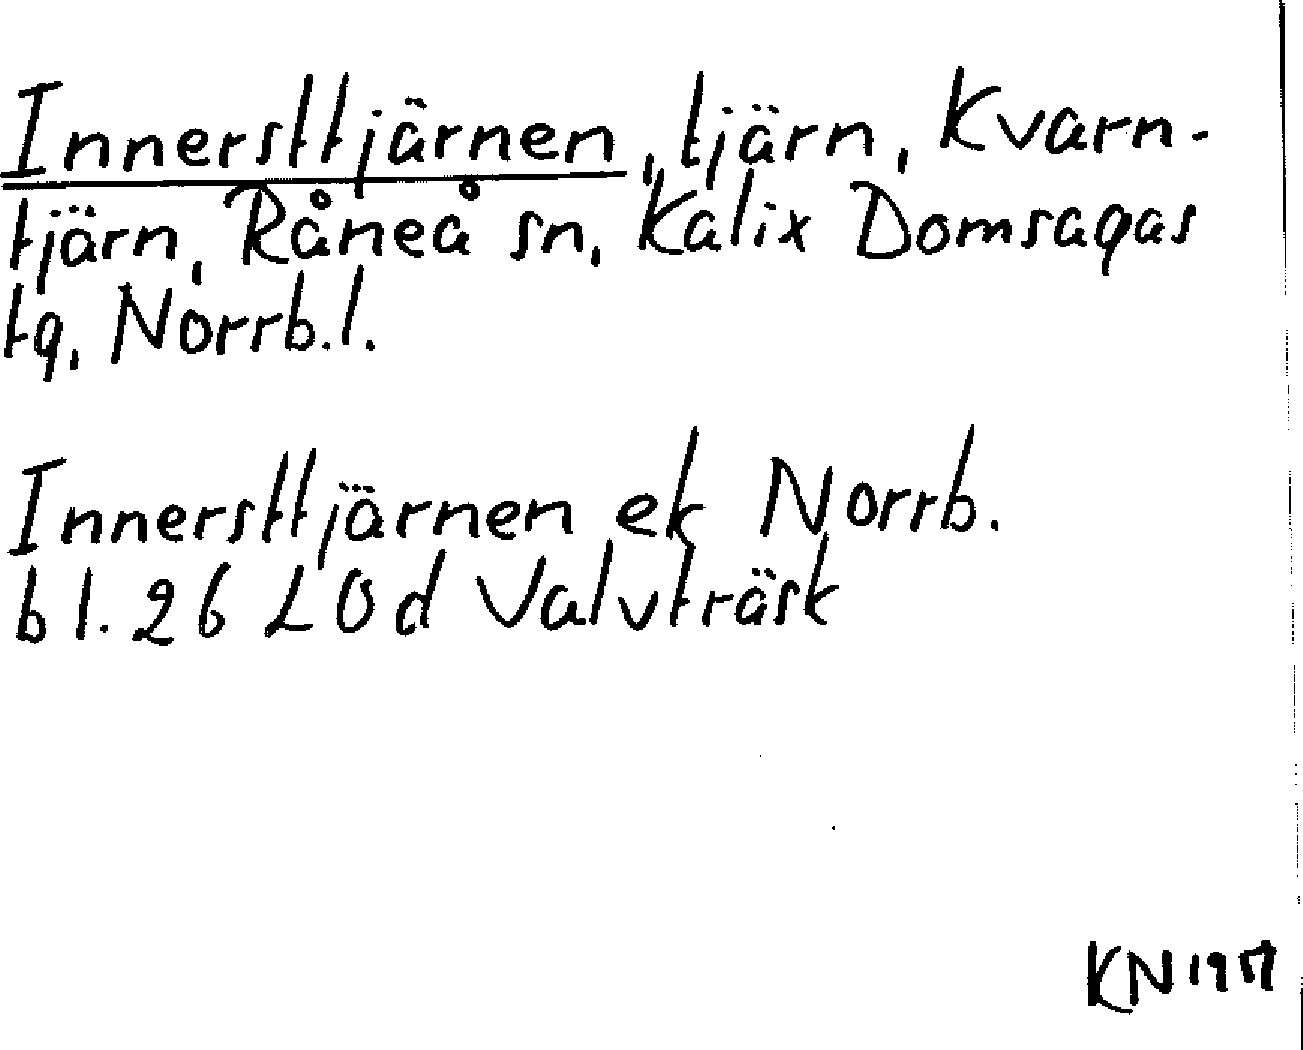 Innersttjärnen, tjärn, Kvarn-
tjärn, Råneå sn, Kalix Domsagas
tg, Norrb.l.
Innersttjärnen ek Norrb.
bl. 26 LOd Valvträsk
KN